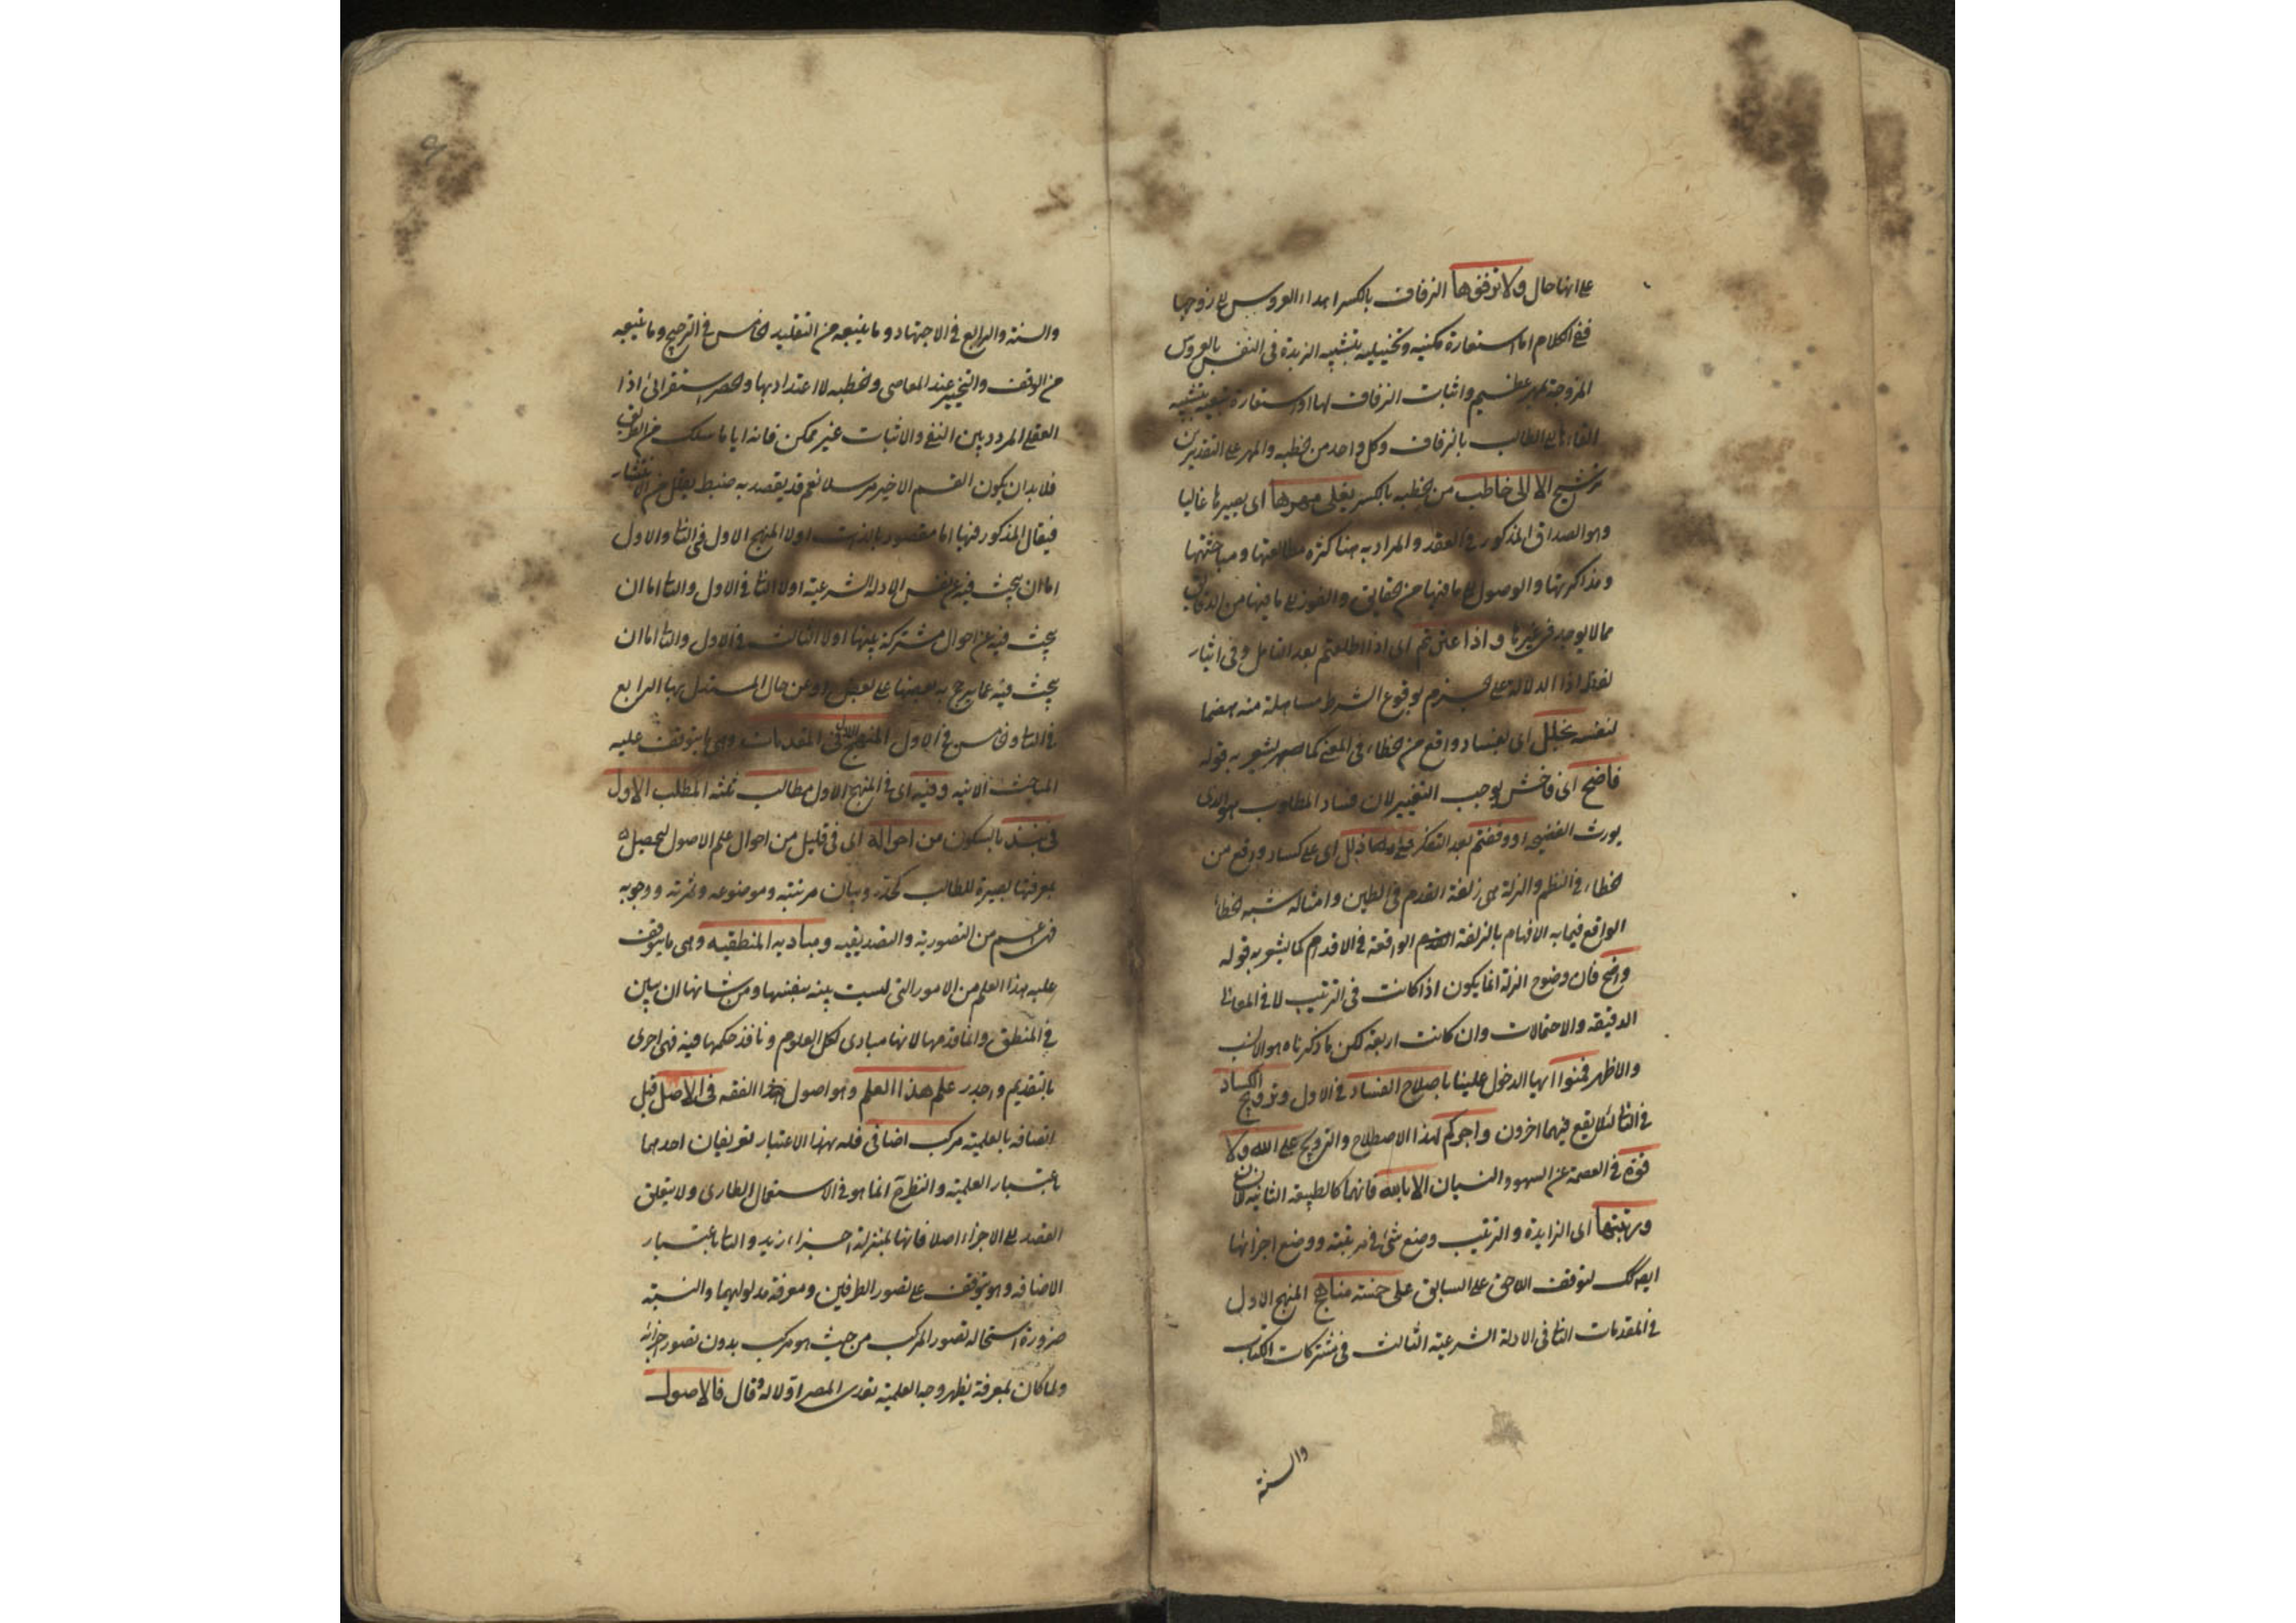 على انها حال ولا تزفوها الزفاف بالكسر اهداء العروس الى زوجها
ففى الكلام اما استعارة مكنيه وتخييليه بتشبيه الزبدة فى النفس بالعروس
المزوجة بمهر عظيم واثبات الزفاف لها او استعارة تبعيه بتشبيه
القاءها الى الطالب بالزفاف وكل واحد من الخطبه والمهر على التقديرين
ترشيح الا الى خاطب من الخطبه بالكسر يغلى مهرها اى يصيرها غاليا
وهو الصداق المذكور فى العقد والمراد به هنا كثرة مطالعتها ومباحثتها
ومذاكرتها والوصول الى ما فيها من الحقايق والفوز الى ما فيها من الدقايق
مما لا يوجد فى غيرها واذا عثرتم اى اذا اطلعتم بعد التامل وفى ايثار
لفظ اذا الدلالة على الجزم بوقوع الشرط مساهلة منه هضما
لنفسه بخلل اى بفساد واقع من الخطاء فى المعنى كما يشعر به قوله
فاضح اى فاحش يوجب التغيير لان فساد المطلوب هو الذى
يورث الفضيحه او وقفتم بعد التفكر على زلل اى على كساد وقع من
الخطاء فى النظم والزلة هى زلقة القدم فى الطين وامثاله شبه الخطاء
الواقع فيما به الافهام بالزلقة الواقعة فى الاقدام كما يشعر به قوله
واضح فان وضوح الزلة انما يكون اذا كانت فى الترتيب لا فى المعانى
الدقيقه والاحتمالات وان كانت اربعة لكن ما ذكرناه هو الانسب
والاظهر فمنوا ايها الدخول علينا باصلاح الفساد فى الاول وترويج الكساد
فى الثانى لئلا يقع فيهما اخرون واجركم لهذا الاصطلاح والترويج على الله ولا
قوة فى العصمة عن السهو والنسيان الا بالله فانهما كالطبيعة الثانيه للانسان
ورتبتها اى الزبدة والترتيب وضع شئ فى مرتبته ووضع اجزائها
ايضا كك لتوقف اللاحق على السابق على خمسة مناهج المنهج الاول
فى المقدمات الثانى فى الادلة الشرعية الثالث فى مشتركات الكتاب
والسنة
والسنة والرابع فى الاجتهاد وما يتبعه من التقليد الخامس فى الترجيح وما يتبعه
من الوقف والتخيير عند المعاصى والخطبه لا اعتداد بها والحصر استقرائى اذا
العقلى المردد بين النفى والاثبات غير ممكن فانه ايا ما سلك من الطريق
فلا بد ان يكون القسم الاخير مرسلا نعم قد يقصد به ضبط يقلل من الانتشار
فيقال المذكور فيها اما مقصود بالذات اولا المنهج الاول فى الثانى والاول
اما ان يبحث فيه عن نفس الادلة الشرعية اولا الثانى فى الاول والثانى اما ان
يبحث فيه عن احوال مشتركة بينها اولا الثالث فى الاول والثانى اما ان
يبحث فيه عما يرجح به بعضها على بعض او عن حال المستدل بها الرابع
فى الثانى والخامس فى الاول المنهج الاول فى المقدمات وهى ما يتوقف عليه
المباحث الاتيه وفيه اى فى المنهج الاول مطالب ثلثه المطلب الاول
فى نبذ بالسكون من احواله اى فى قليل من احوال علم الاصول ليحصل
بمعرفتها بصيرة للطالب كحده وبيان مرتبته وموضوعه وثمرته ووجوبه
فهى اعم من التصورية والتصديقيه ومباديه المنطقيه وهى ما يتوقف
عليه هذا العلم من الامور التى ليست بينه بنفسها ومن شانها ان يبين
فى المنطق وانما قدمها لانها مبادى لكل العلوم ونافذ حكمها فيه فهى احرى
بالتقديم واجدر علم هذا العلم وهو اصول الفقه فى الاصل قبل
اتصافه بالعلمية مركب اضافى فله بهذا الاعتبار تعريفان احدهما
باعتبار العلمية والنظر انما هو فى الاستعمال الطارى ولا يتعلق
القصد الى الاجزاء اصلا فانها بمنزلة اجزاء زيد والثانى باعتبار
الاضافه وهو يتوقف على تصور الطرفين ومعرفة مدلوليهما والنسبة
ضرورة استحاله تصور المركب من حيث هو مركب بدون تصور اجزائه
ولما كان بمعرفة يظهر وجه العلمية المص اولا له وقال فالاصول